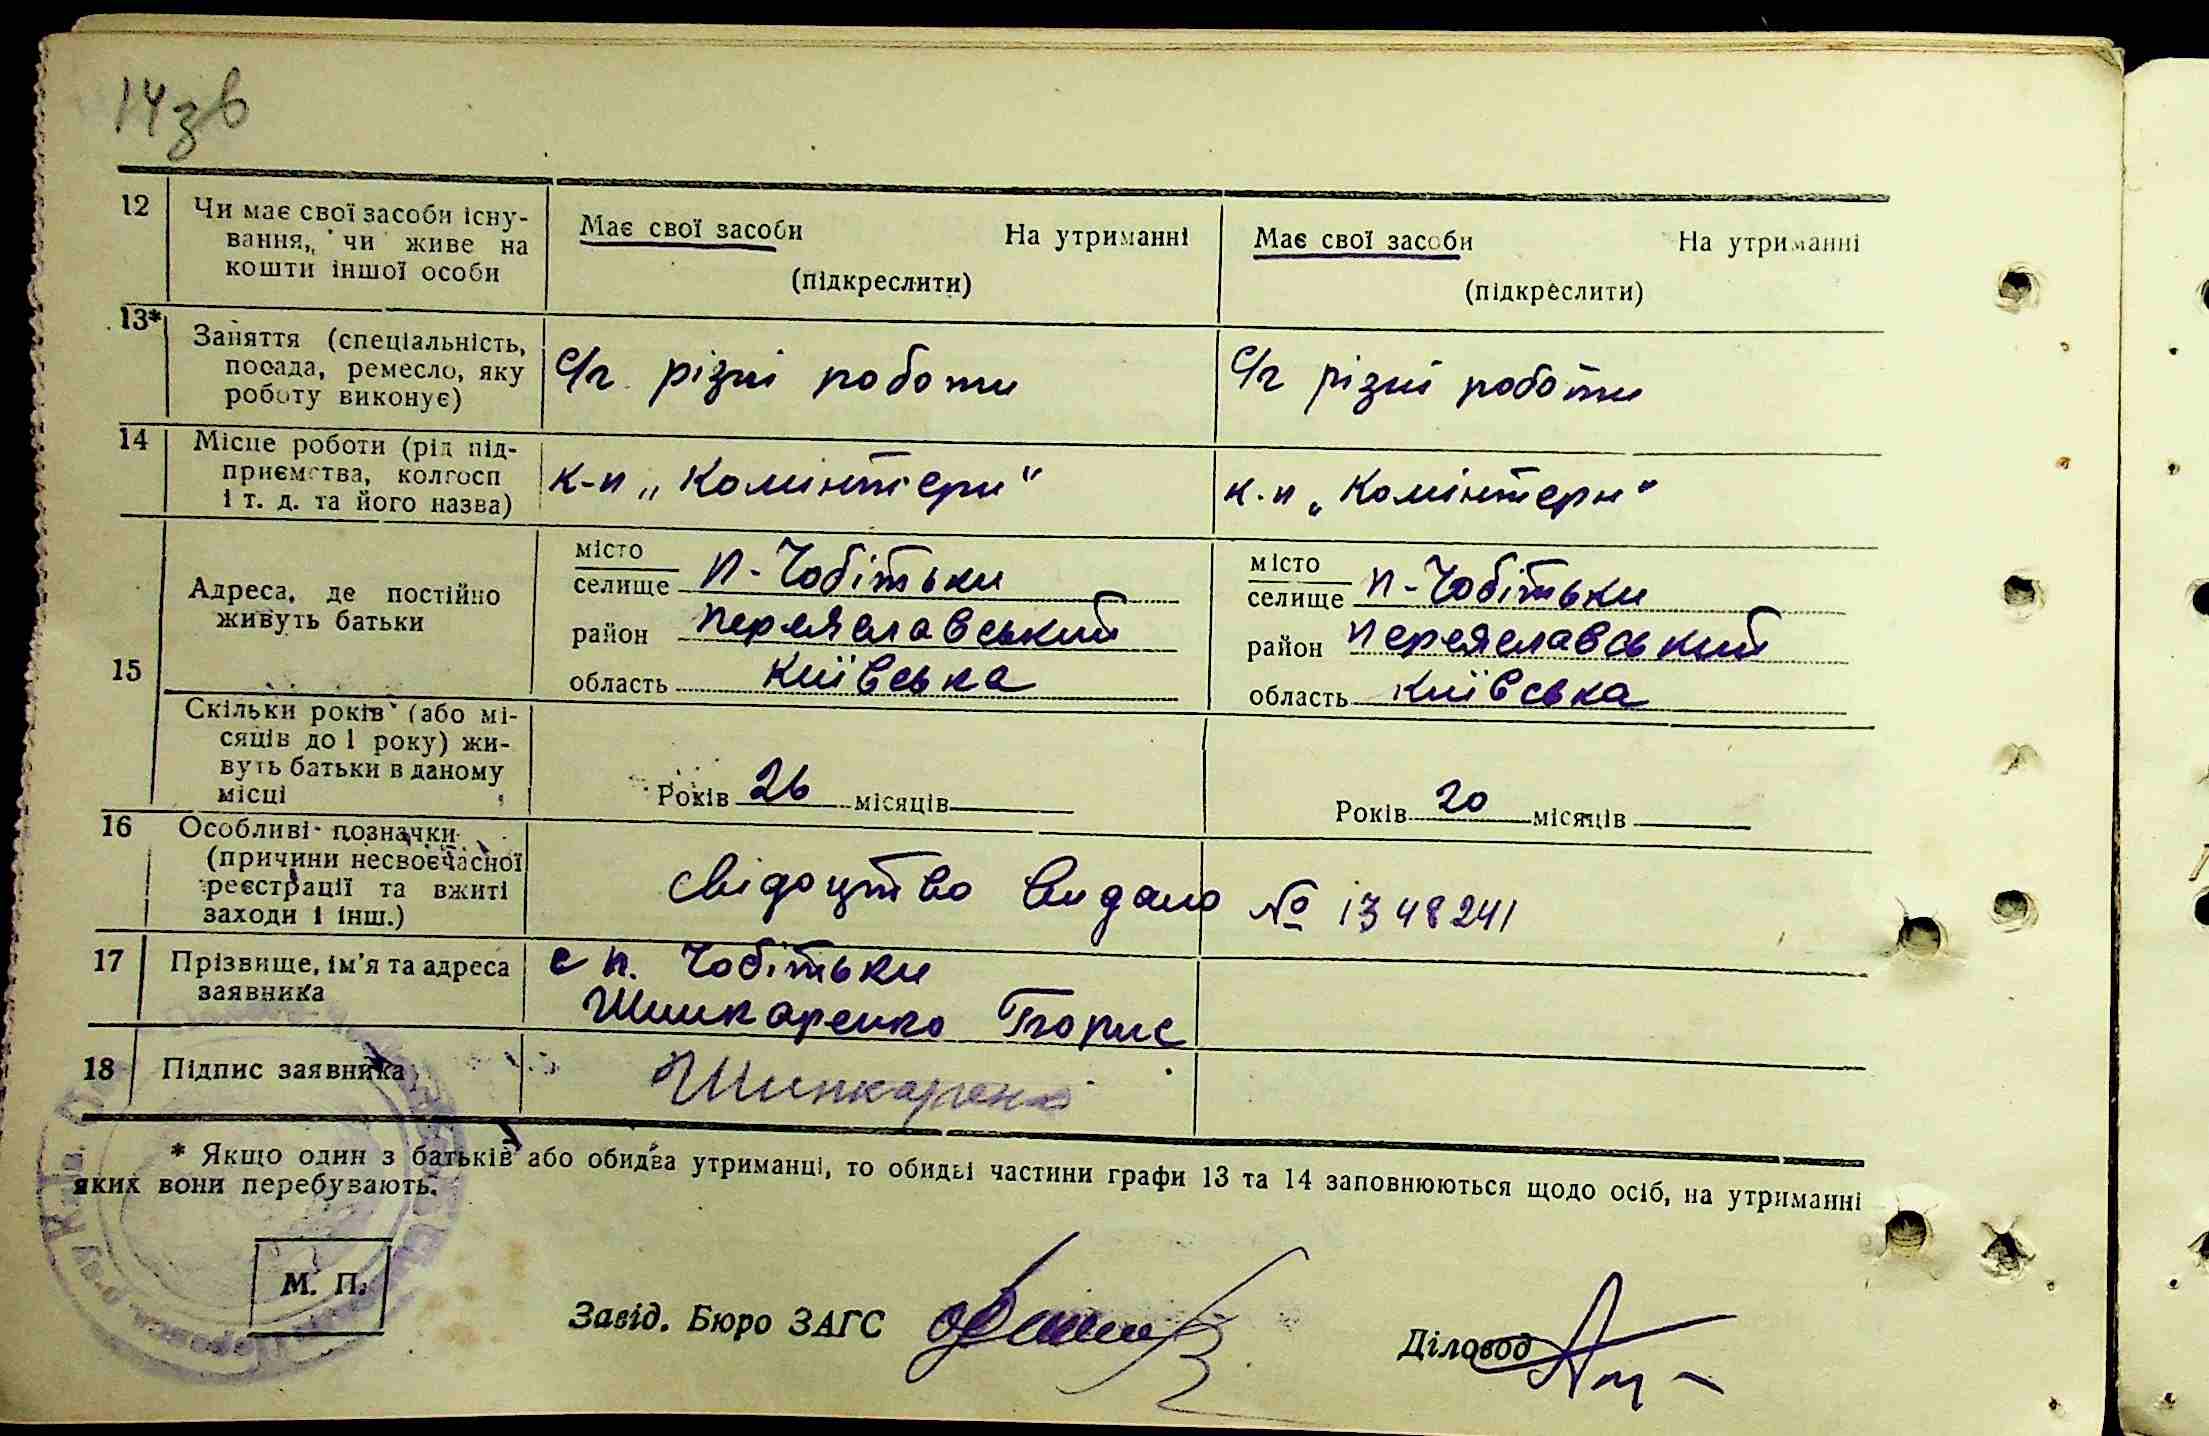 14зв
12
Чи має свої засоби існу-
вання, чи живе на
кошти іншої особи
Має свої засоби На утриманні
(підкреслити)
Має свої засоби На утриманні
(підкреслити)
13*
Заняття (спеціальність,
посада, ремесло, яку
роботу виконує)
С/г. різні роботи
С/г різні роботи
14
Місце роботи (рід під-
приємства, колгосп
і т. д. та його назва)
к-п „Комінтерн“
к.п „Комінтерн“
15
Адреса, де постійно
живуть батьки
місто
селище п-Чобітьки
район переяславський
область київська
місто
селище п-Чобітьки
район переяславський
область київська
Скільки років (або мі-
сяців до 1 року) жи-
вуть батьки в даному
місці
Років 26 місяців
Років 20 місяців
16
Особливі позначки
(причини несвоєчасної
реєстрації та вжиті
заходи і інш.)
свідоцтво видано № 1348241
17
Прізвище, ім'я та адреса
заявника
с п. Чобітьки
Шинкаренко
18
Підпис заявника
* Якщо один з батьків або обидва утриманці, то обидві частини графи 13 та 14 заповнюються щодо осіб, на утриманні
яких вони перебувають.
М. П.
Завід. Бюро ЗАГС
Діловод